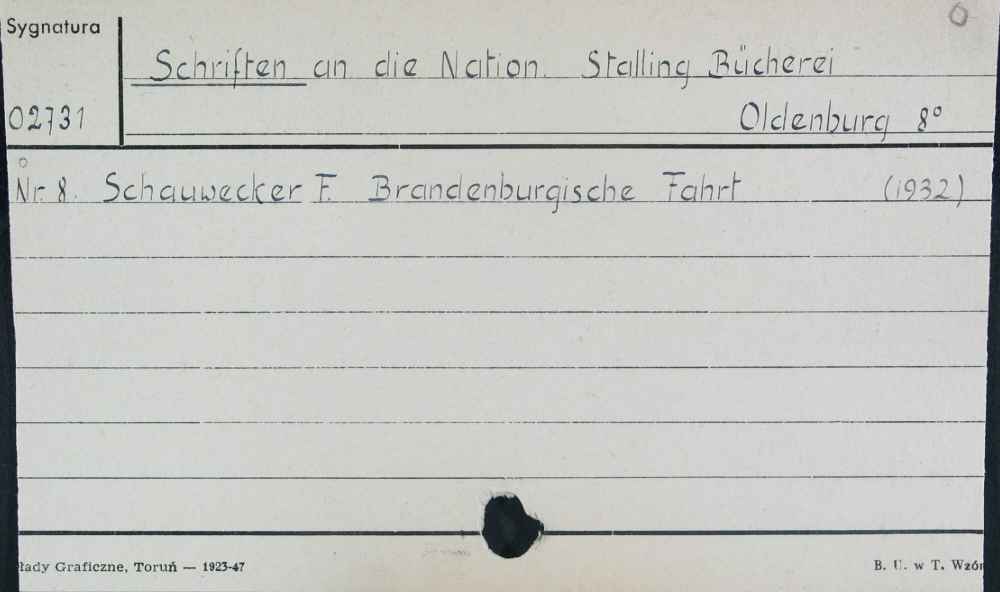 Sygnatura
Schriften an die Nation. Stalling Bücherei
02731
Oldenburg 8°
Nr. 8. Schauwecker F. Brandenburgische Fahrt (1932)
łady Graficzne, Toruń — 1923-47
B. U. w T. Wzór